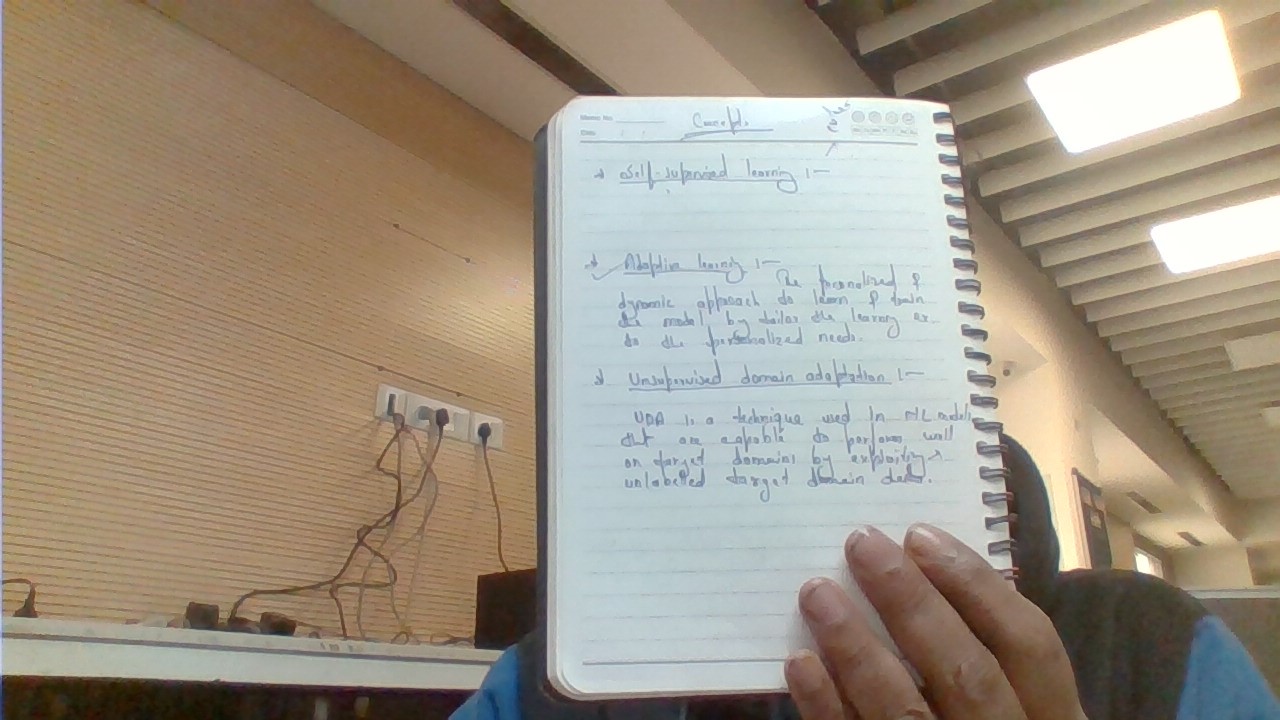 Memo No.
Date
Concepts
Self-supervised learning :-
Adaptive learning :-
The personalized &
dynamic approach to learn & train
the model by tailor the learning ex-
to the personalized needs.
Unsupervised domain adaptation :-
UDA is a technique used in ML models
that are capable to perform well
on target domains by exploiting
unlabelled target domain data.